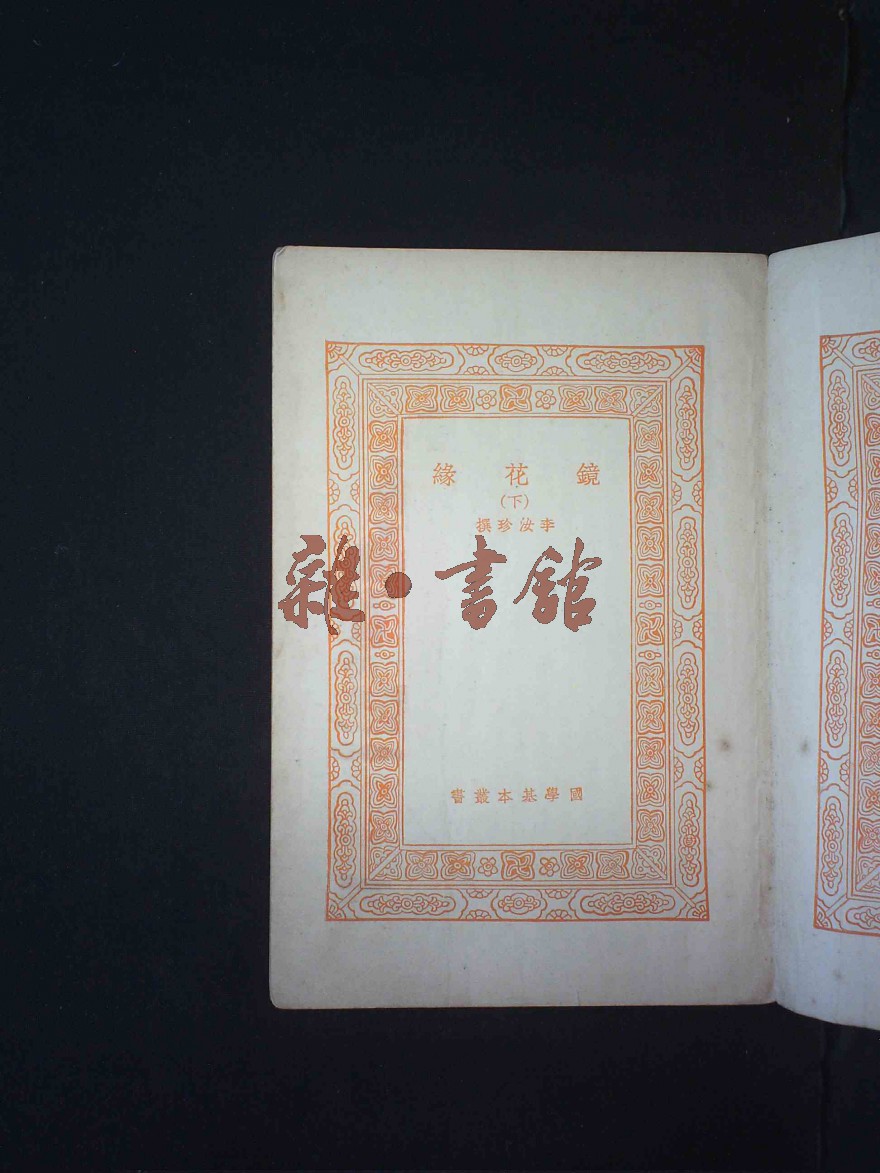 鏡花緣
(下)
李汝珍撰
雜·書館
國學基本叢書